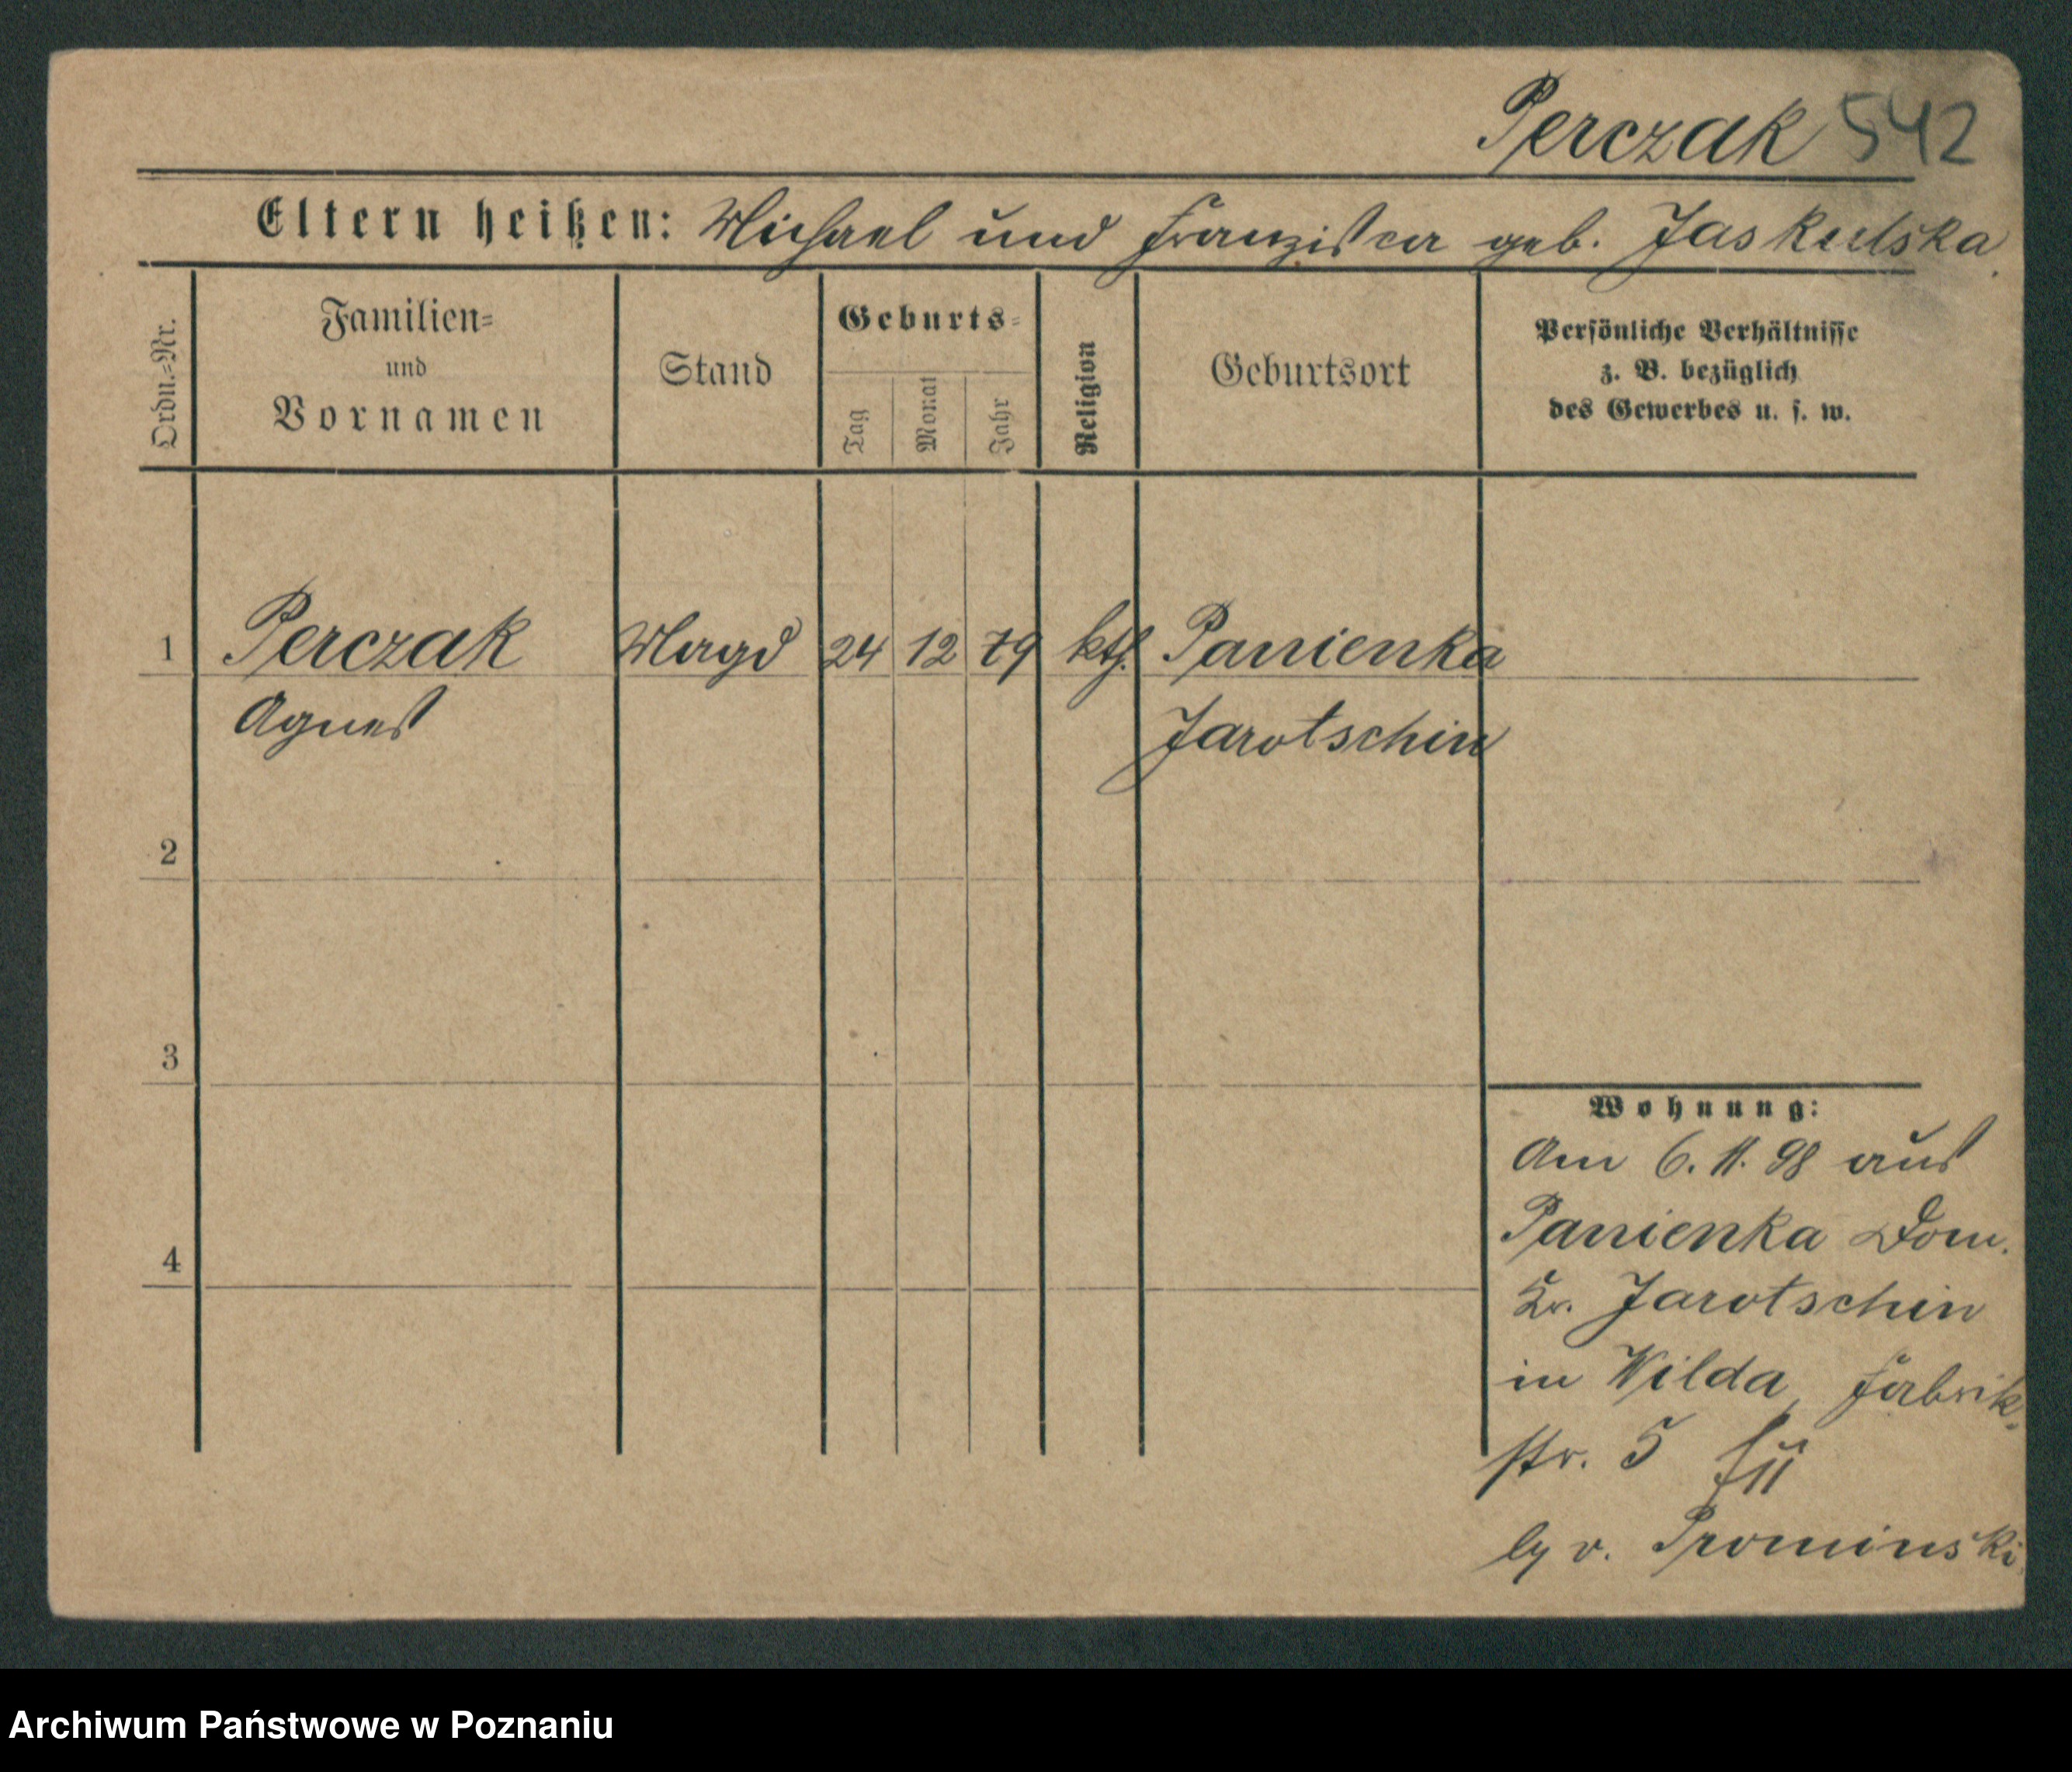 Perczak 542
Eltern heißen: Michael und Franziska geb. Jaskulska
Ordn.=Nr.
Familien=
und
Vornamen
Stand
Geburts=
Tag
Monat
Jahr
Religion
Geburtsort
Persönliche Verhältnisse
z. B. bezüglich
des Gewerbes u. s. w.
1 Perczak Magd 24 12 79 kth. Panienka
Agnes Jarotschin
2
3
4
Wohnung:
Am 6. 11. 98 aus
Panienka Dom.
Kr. Jarotschin
in Wilda, Fabrik-
str. 5
b/ v. Prominski
Archiwum Państwowe w Poznaniu